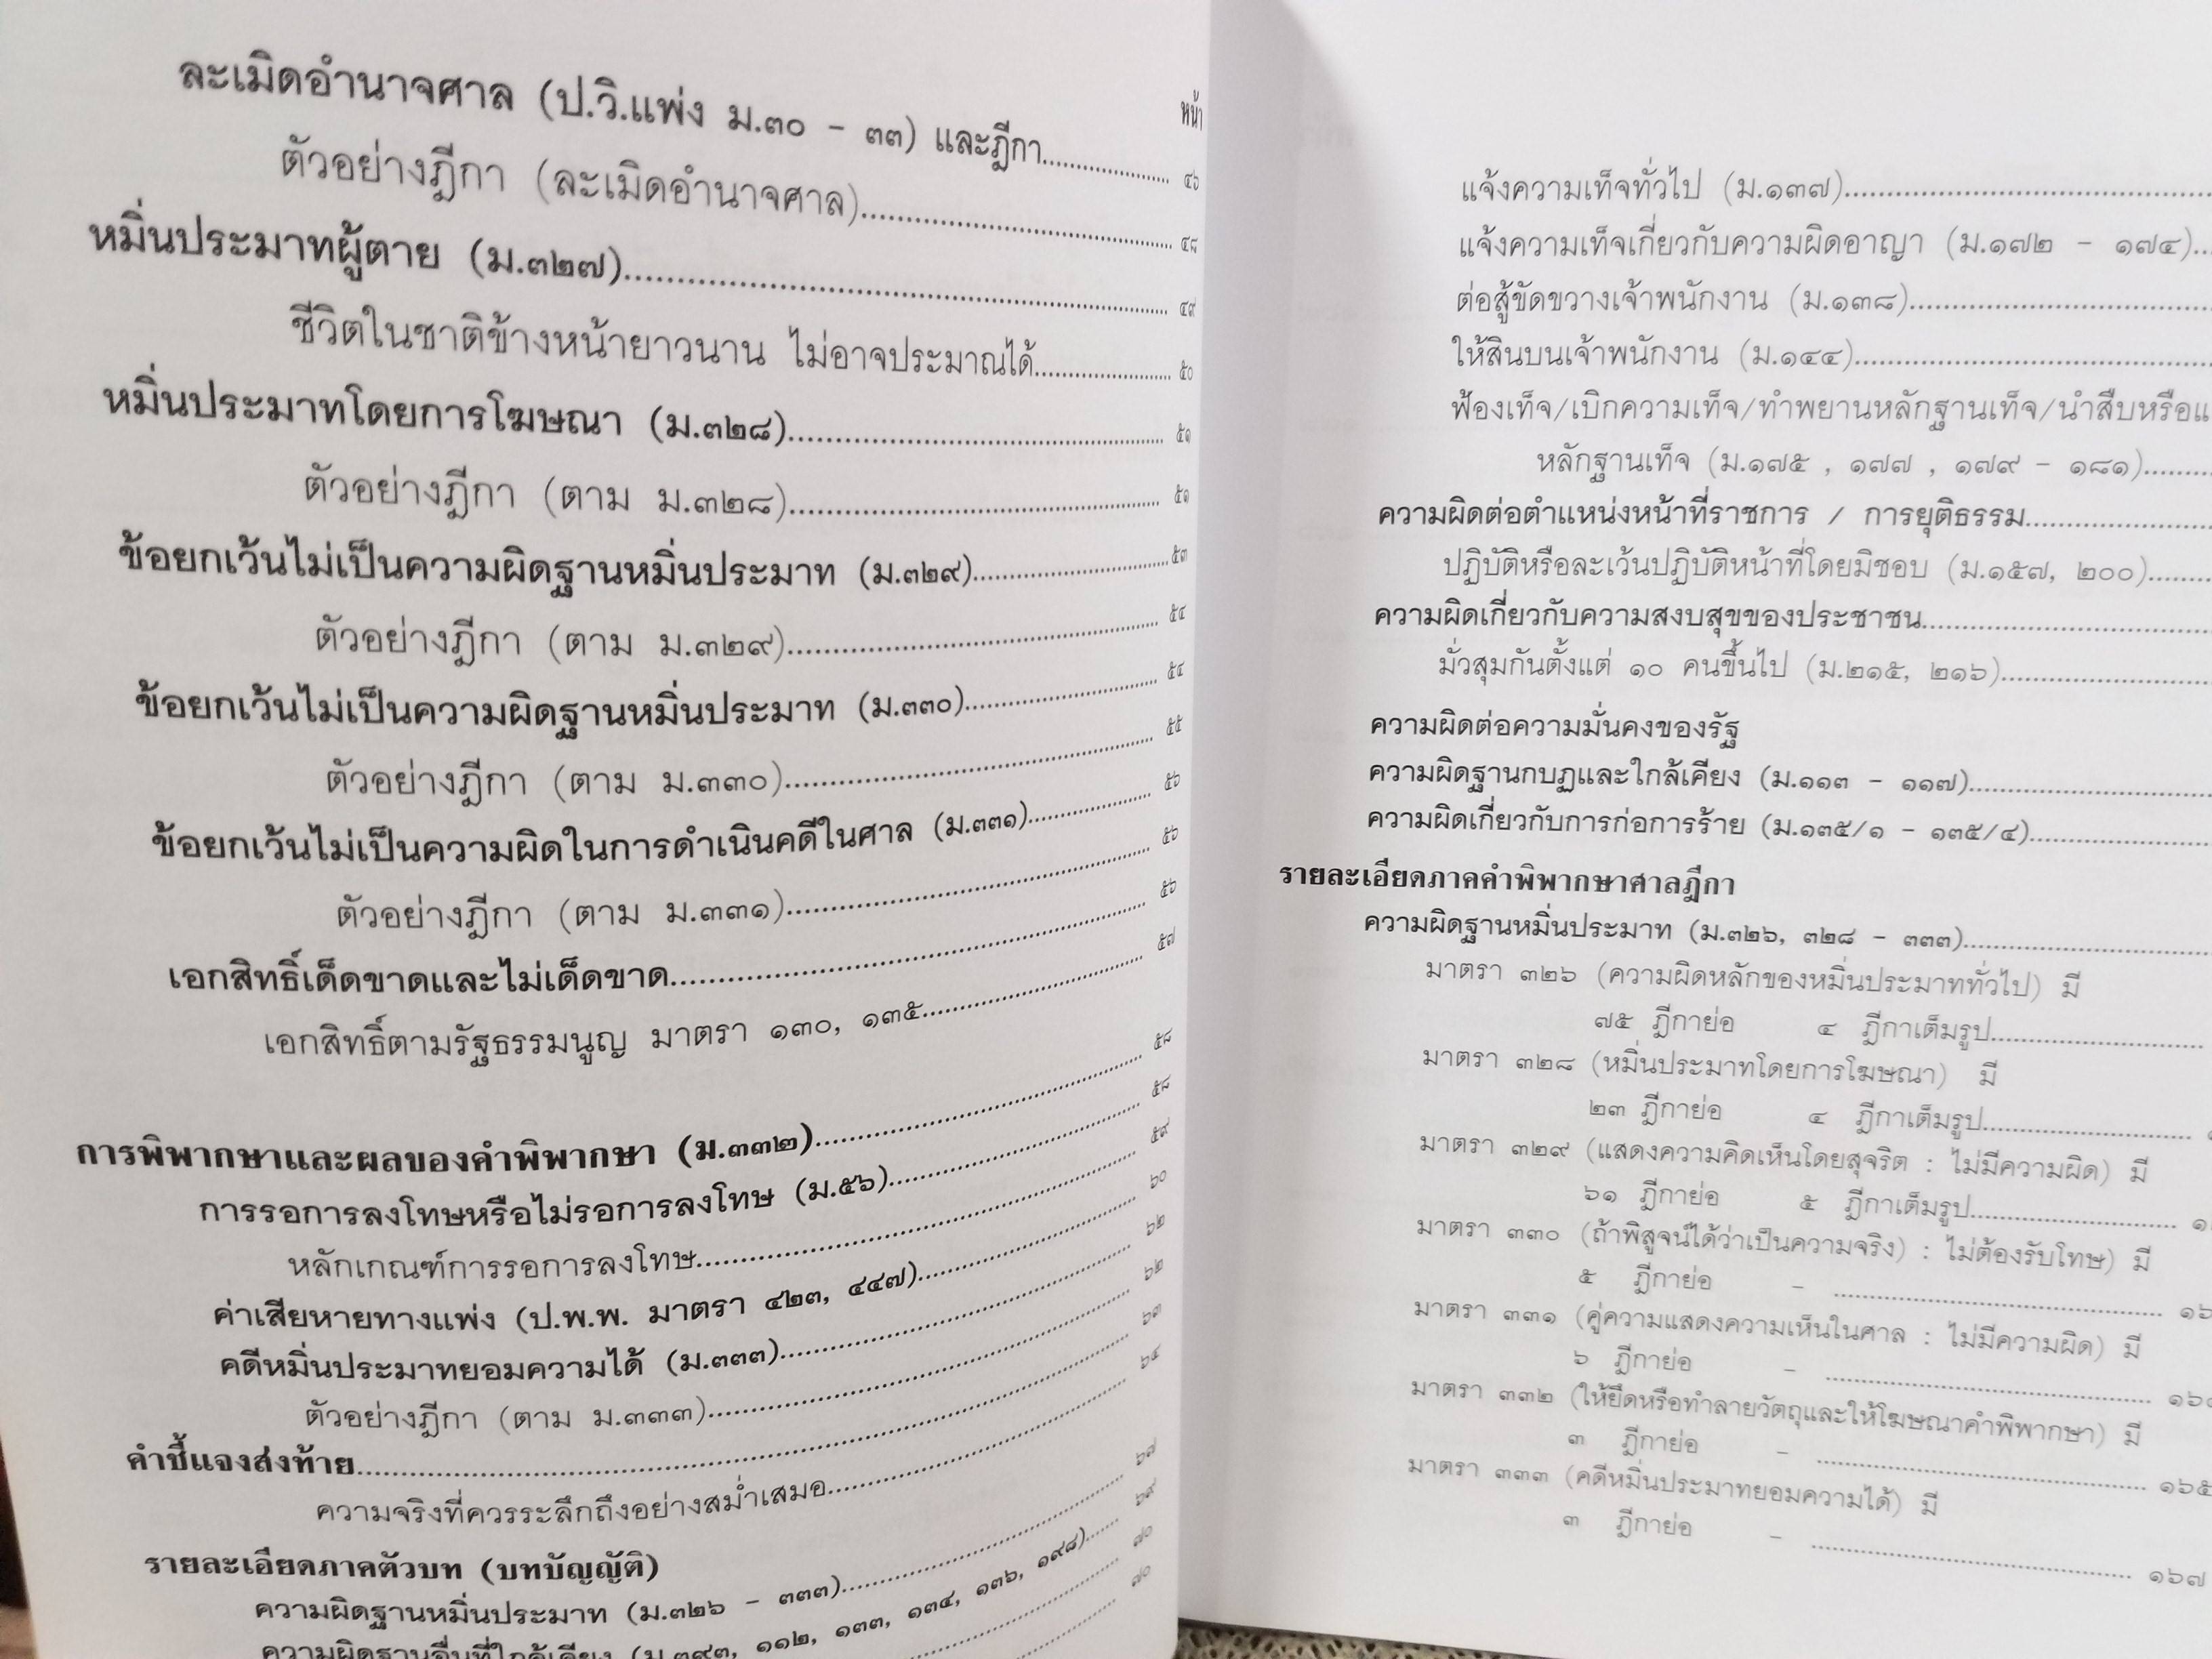 หน้า
ละเมิดอำนาจศาล (ป.วิ.แพ่ง ม.๓๐ - ๓๓) และฎีกา........................ ๔๖
ตัวอย่างฎีกา (ละเมิดอำนาจศาล)........................ ๔๘
หมิ่นประมาทผู้ตาย (ม.๓๒๗)........................ ๔๙
ชีวิตในชาติข้างหน้ายาวนาน ไม่อาจประมาณได้........................ ๕๐
หมิ่นประมาทโดยการโฆษณา (ม.๓๒๘)........................ ๕๑
ตัวอย่างฎีกา (ตาม ม.๓๒๘)........................ ๕๑
ข้อยกเว้นไม่เป็นความผิดฐานหมิ่นประมาท (ม.๓๒๙)........................ ๕๓
ตัวอย่างฎีกา (ตาม ม.๓๒๙)........................ ๕๔
ข้อยกเว้นไม่เป็นความผิดฐานหมิ่นประมาท (ม.๓๓๐)........................ ๕๔
ตัวอย่างฎีกา (ตาม ม.๓๓๐)........................ ๕๕
ข้อยกเว้นไม่เป็นความผิดในการดำเนินคดีในศาล (ม.๓๓๑)........................ ๕๖
ตัวอย่างฎีกา (ตาม ม.๓๓๑)........................ ๕๖
เอกสิทธิ์เด็ดขาดและไม่เด็ดขาด........................ ๕๖
เอกสิทธิ์ตามรัฐธรรมนูญ มาตรา ๑๓๐, ๑๓๕........................ ๕๗
การพิพากษาและผลของคำพิพากษา (ม.๓๓๒)........................ ๕๘
การรอการลงโทษหรือไม่รอการลงโทษ (ม.๕๖)........................ ๕๘
หลักเกณฑ์การรอการลงโทษ........................ ๕๙
ค่าเสียหายทางแพ่ง (ป.พ.พ. มาตรา ๔๒๓, ๔๔๗)........................ ๖๐
คดีหมิ่นประมาทยอมความได้ (ม.๓๓๓)........................ ๖๒
ตัวอย่างฎีกา (ตาม ม.๓๓๓)........................ ๖๒
คำชี้แจงส่งท้าย........................ ๖๓
ความจริงที่ควรระลึกถึงอย่างสม่ำเสมอ........................ ๖๔
รายละเอียดภาคตัวบท (บทบัญญัติ)........................ ๖๗
ความผิดฐานหมิ่นประมาท (ม.๓๒๖ - ๓๓๓)........................ ๖๙
ความผิดฐานอื่นที่ใกล้เคียง (ม.๓๙๓, ๑๑๒, ๑๓๓, ๑๓๔, ๑๓๖, ๑๙๘)........ ๗๐
๗๐
แจ้งความเท็จทั่วไป (ม.๑๓๗)........................
แจ้งความเท็จเกี่ยวกับความผิดอาญา (ม.๑๗๒ - ๑๗๔)...
ต่อสู้ขัดขวางเจ้าพนักงาน (ม.๑๓๘)........................
ให้สินบนเจ้าพนักงาน (ม.๑๔๔)........................
ฟ้องเท็จ/เบิกความเท็จ/ทำพยานหลักฐานเท็จ/นำสืบหรือแ
หลักฐานเท็จ (ม.๑๗๕ , ๑๗๗ , ๑๗๙ - ๑๘๑).........
ความผิดต่อตำแหน่งหน้าที่ราชการ / การยุติธรรม........................
ปฏิบัติหรือละเว้นปฏิบัติหน้าที่โดยมิชอบ (ม.๑๕๗, ๒๐๐)........
ความผิดเกี่ยวกับความสงบสุขของประชาชน........................
มั่วสุมกันตั้งแต่ ๑๐ คนขึ้นไป (ม.๒๑๕, ๒๑๖)........................
ความผิดต่อความมั่นคงของรัฐ
ความผิดฐานกบฏและใกล้เคียง (ม.๑๑๓ - ๑๑๗)........................
ความผิดเกี่ยวกับการก่อการร้าย (ม.๑๓๕/๑ - ๑๓๕/๔)........................
รายละเอียดภาคคำพิพากษาศาลฎีกา
ความผิดฐานหมิ่นประมาท (ม.๓๒๖, ๓๒๘ - ๓๓๓)........................
มาตรา ๓๒๖ (ความผิดหลักของหมิ่นประมาททั่วไป) มี
๗๕ ฎีกาย่อ ๔ ฎีกาเต็มรูป........................
มาตรา ๓๒๘ (หมิ่นประมาทโดยการโฆษณา) มี
๒๓ ฎีกาย่อ ๔ ฎีกาเต็มรูป........................
มาตรา ๓๒๙ (แสดงความคิดเห็นโดยสุจริต : ไม่มีความผิด) มี
๖๑ ฎีกาย่อ ๕ ฎีกาเต็มรูป........................
มาตรา ๓๓๐ (ถ้าพิสูจน์ได้ว่าเป็นความจริง) : ไม่ต้องรับโทษ) มี
๕ ฎีกาย่อ - ........................ ๑๖
มาตรา ๓๓๑ (คู่ความแสดงความเห็นในศาล : ไม่มีความผิด) มี
๖ ฎีกาย่อ - ........................ ๑๖
มาตรา ๓๓๒ (ให้ยึดหรือทำลายวัตถุและให้โฆษณาคำพิพากษา) มี
๓ ฎีกาย่อ - ........................ ๑๖๕
มาตรา ๓๓๓ (คดีหมิ่นประมาทยอมความได้) มี
๓ ฎีกาย่อ - ........................ ๑๖๗